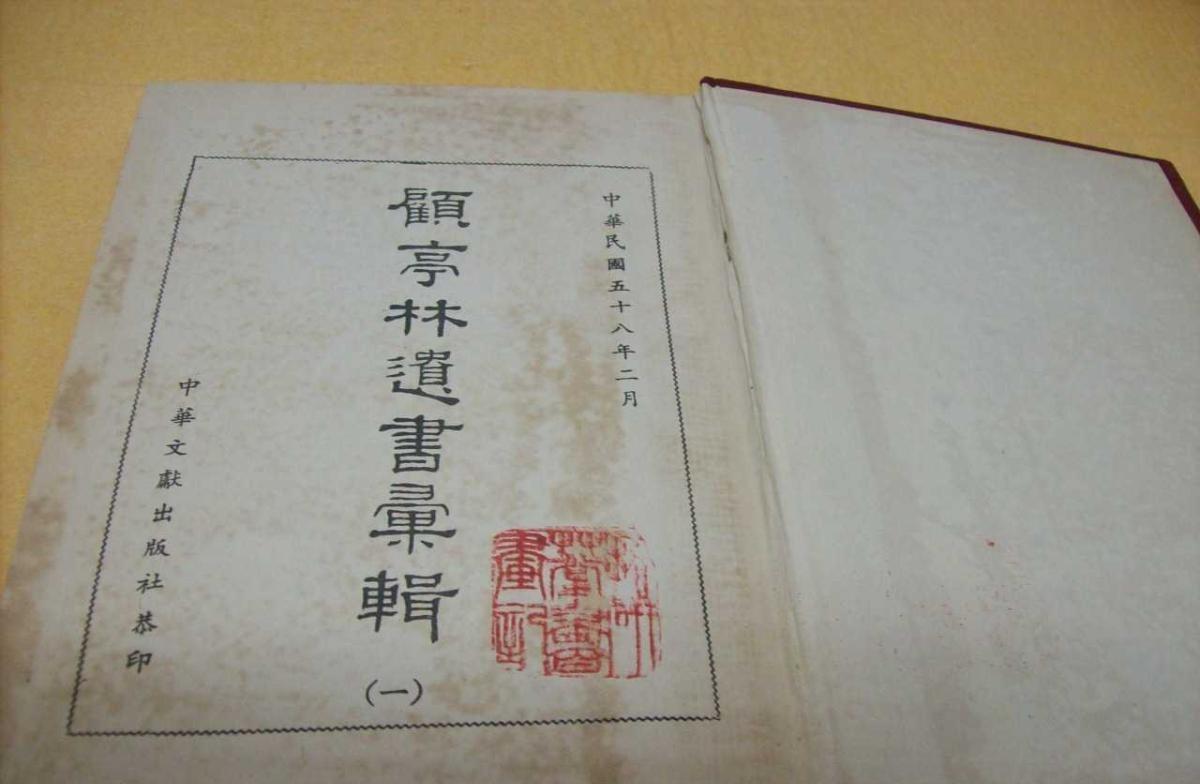 中華民國五十八年二月
顧亭林遺書彙輯
(一)
中華文獻出版社恭印